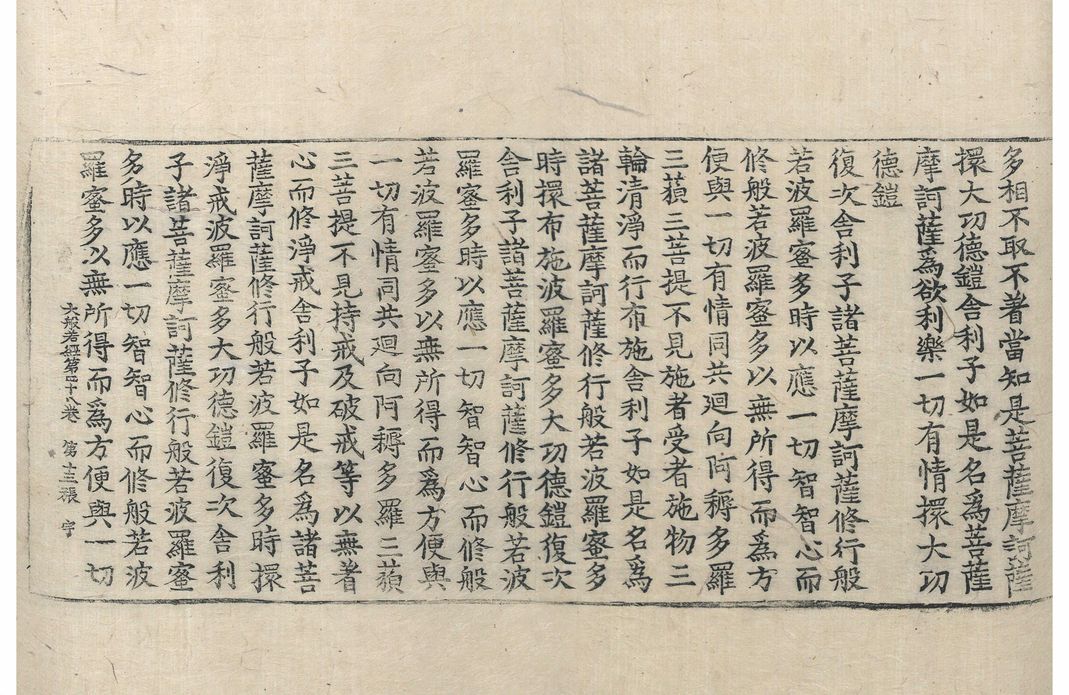 多相不取不著當知是菩薩摩訶薩
擐大功德鎧舍利子如是名為菩薩
摩訶薩為欲利樂一切有情擐大功
德鎧
復次舍利子諸菩薩摩訶薩修行般
若波羅蜜多時以應一切智智心而
修般若波羅蜜多以無所得而為方
便與一切有情同共迴向阿耨多羅
三藐三菩提不見施者受者施物三
輪清淨而行布施舍利子如是名為
諸菩薩摩訶薩修行般若波羅蜜多
時擐布施波羅蜜多大功德鎧復次
舍利子諸菩薩摩訶薩修行般若波
羅蜜多時以應一切智智心而修般
若波羅蜜多以無所得而為方便與
一切有情同共迴向阿耨多羅三藐
三菩提不見持戒及破戒等以無著
心而修淨戒舍利子如是名為諸菩
薩摩訶薩修行般若波羅蜜多時擐
淨戒波羅蜜多大功德鎧復次舍利
子諸菩薩摩訶薩修行般若波羅蜜
多時以應一切智智心而修般若波
羅蜜多以無所得而為方便與一切
大般若經第四十八卷 第十三張 宇